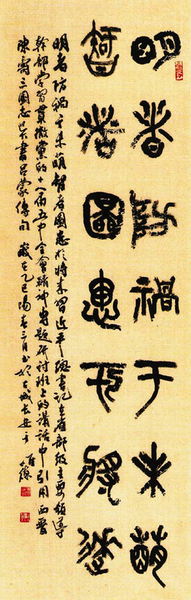 明者防禍于未萌
智者圖患于將來
明者防禍于未萌智者圖患於將來習近平總書記在省部級主要領導
幹部學習貫徹黨的十八屆五中全會精神專題研討班上的講話中引用西晉
陳壽三國志吳書呂蒙傳句 歲在乙巳陽春三月於古城長安